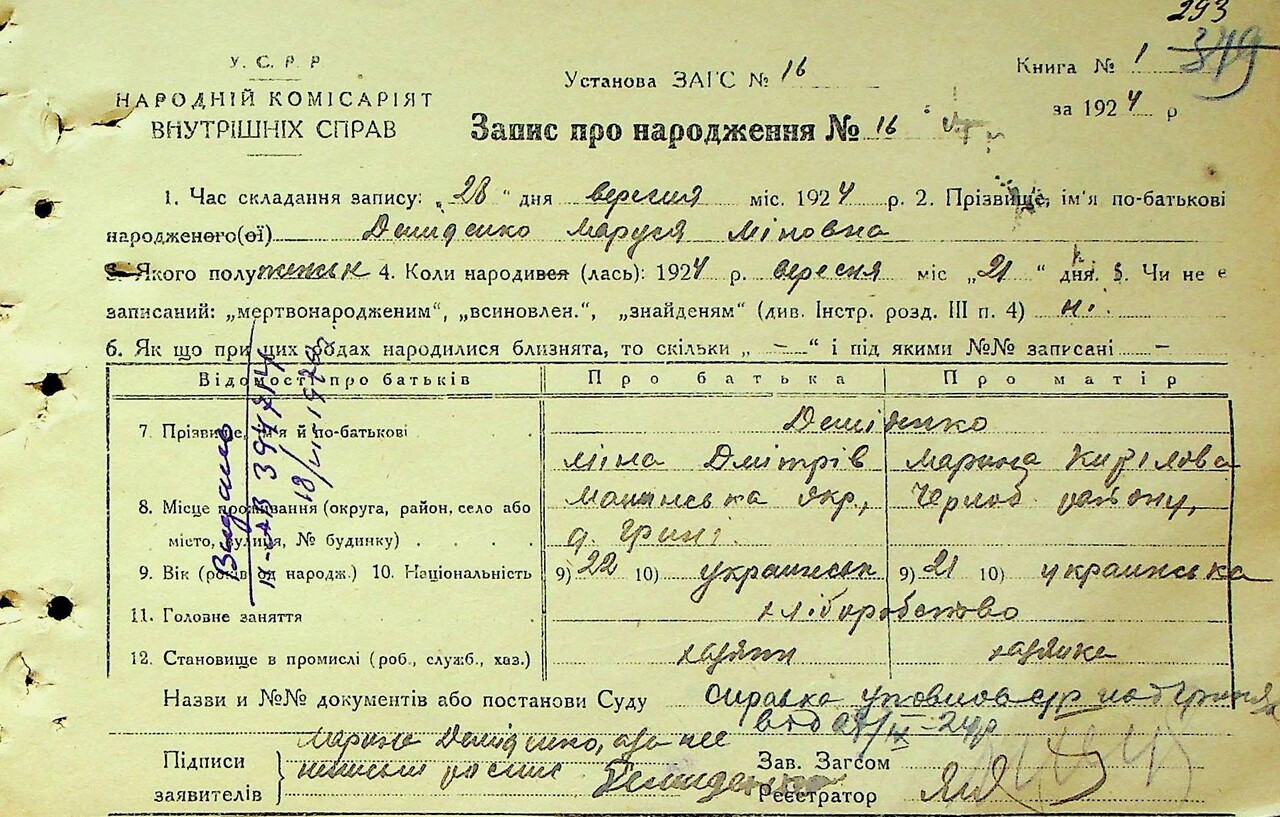 293
319
У. С. Р. Р.
Установа ЗАГС № 16
Книга № 1
НАРОДНІЙ КОМІСАРІЯТ
за 1924 р
ВНУТРІШНІХ СПРАВ
Запис про народження № 16
1. Час складання запису: „28“ дня вересня міс. 1924 р. 2. Прізвище, ім'я по-батькові
народженого(ої) Демиденко Маруся Міновна
3. Якого полу женськ 4. Коли народився (лась): 1924 р. вересня міс „21“ дня. 5. Чи не є
записаний: „мертвонародженим“, „всиновлен.“, „знайденям“ (див. Інстр. розд. III п. 4) ні.
6. Як що при цих родах народилися близнята, то скільки „ — “ і під якими №№ записані —
Відомості про батьків Про батька Про матір
7. Прізвище, ім'я й по-батькові Демиденко
Міна Дмітрів Марина Кирілова
8. Місце проживання (округа, район, село або
місто, вулиця, № будинку) д. Грині.
9. Вік (років від народж.) 10. Національність 9) 22 10) украинськ 9) 21 10) украинська
11. Головне заняття хліборобство
12. Становище в промислі (роб., служб., хаз.) хазяин хазяика
Назви и №№ документів або постанови Суду Справка
від 27/IX-24р
Підписи
заявителів
Марина Демиденко, а за нее
Демиденко
Зав. Загсом
Реєстратор
Выдано
18/VI 19